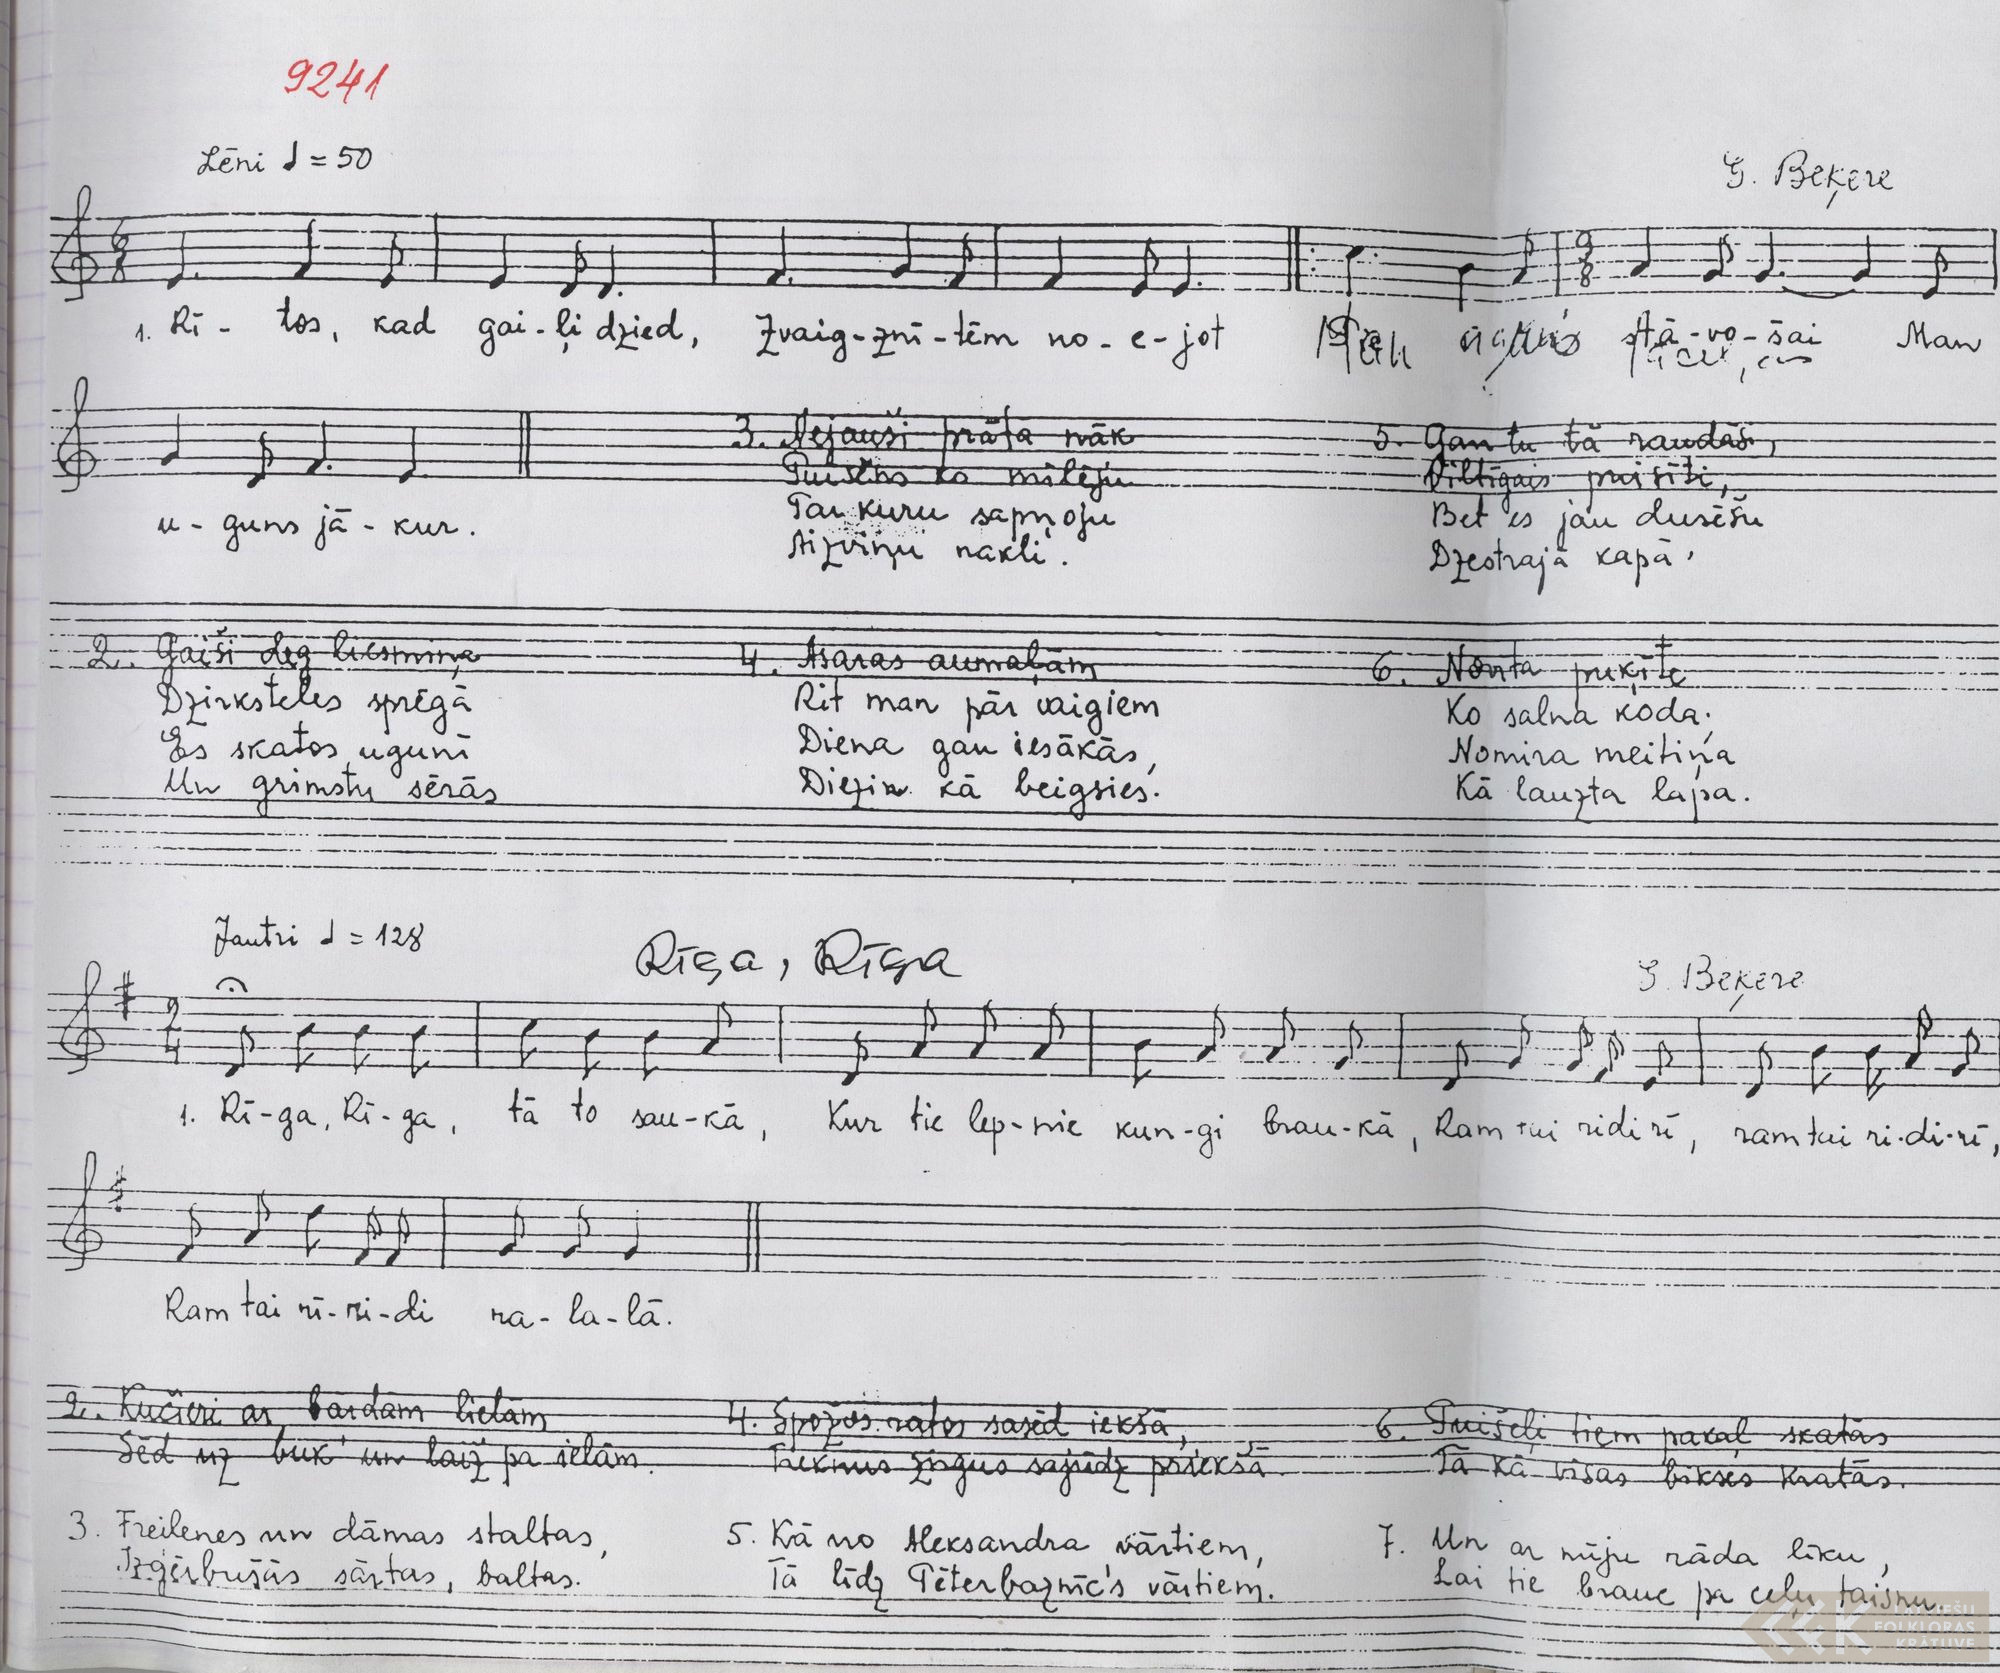 9241
Lēni ♩ = 50
G. Beķere
1. Rī - tos, kad gai - ļi dzied, Zvaig - znī - tēm no - e - jot stā - vo - šai Man
u - guns jā - kur.
3. Nejauši prāta nāk
Puisēns ko mīlēju
Par kuru sapņoju
Aizviņu nakti.
5. Gan tu tā raudāsi,
Viltīgais puisīti,
Bet es jau dusēšu
Dzestrajā kapā.
2. Gaiši deg liesmiņa
Dzirksteles sprēgā
Es skatos ugunī
Un grimstu sērās
4. Asaras aumaļām
Rit man pār vaigiem
Diena gan iesākās,
Diezin kā beigsies.
6. Norita puķīte
Ko salna koda;
Nomira meitiņa
Kā lauzta lapa.
Jautri ♩ = 128
Rīga, Rīga
G. Beķere
1. Rī - ga, Rī - ga, tā to sau - kā, Kur tie lep - nie kun - gi brau - kā, Ram tai ridi rī, ram tai ri - di - rī,
Ram tai rī - ri - di ra - la - lā.
2. Kučieri ar bardām lielām
Sēd uz buk' un laiž pa ielām.
4. Spožos ratos sasēd iekšā,
Treknus zirgus sajūdz priekšā.
6. Puišeļi tiem pakaļ skatās
Tā kā visas bikses kratās.
3. Freilenes un dāmas staltas,
Izģērbušās sārtas, baltas.
5. Kā no Aleksandra vārtiem,
Tā līdz Pēterbaznīc's vārtiem.
7. Un ar mūju rāda līku,
Lai tie brauc pa ceļu taisnu.
LATVIEŠU
FOLKLORAS
KRĀTUVE